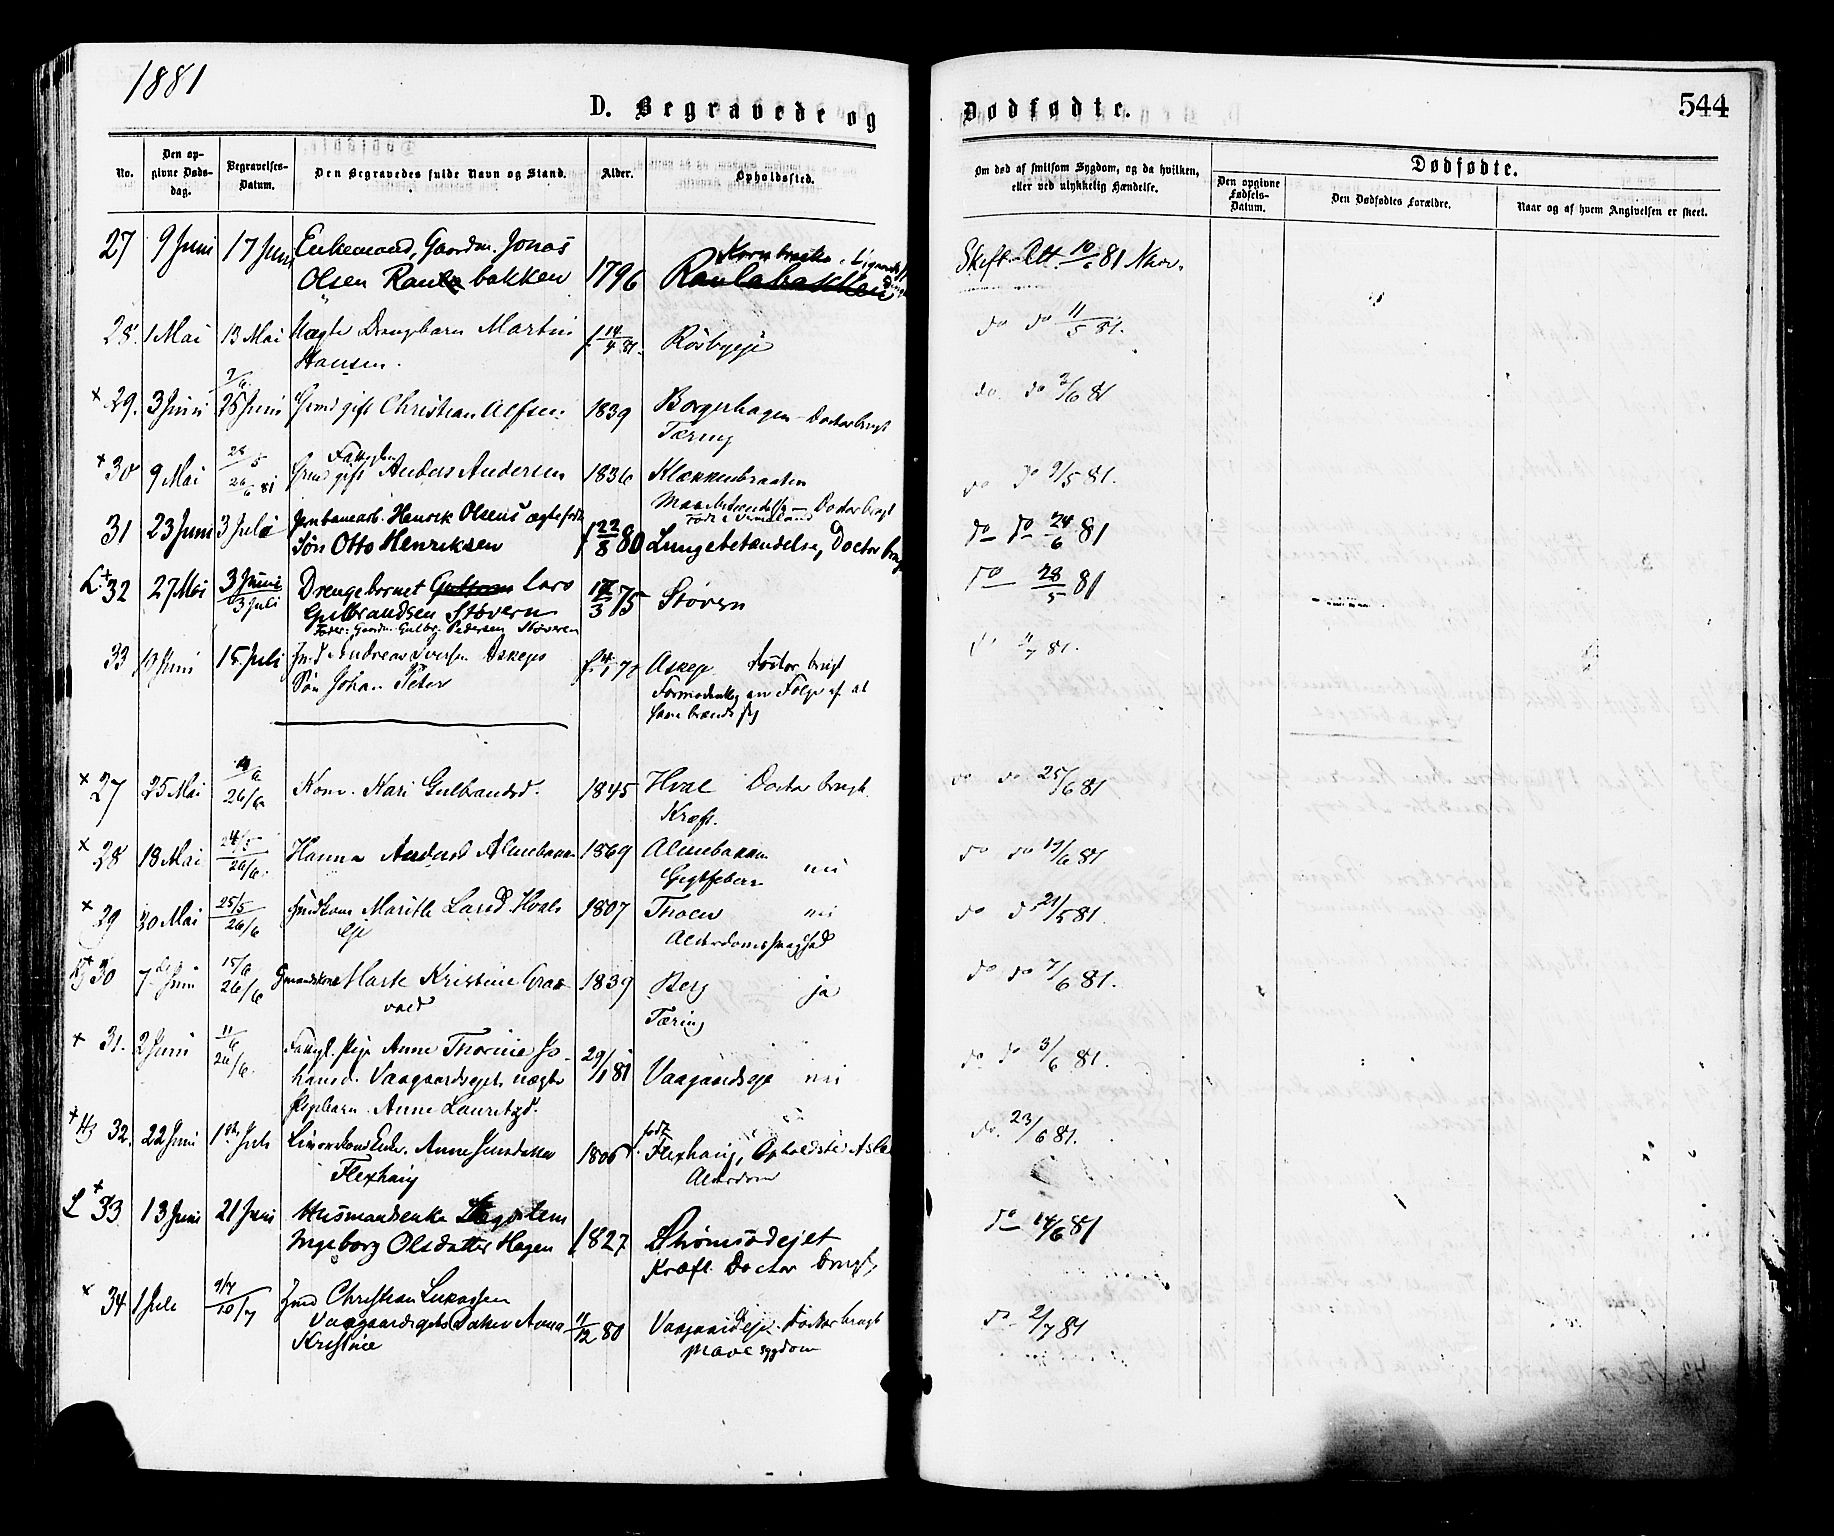 1881
D. Begravede og
Dødfødte.
544
No.
Den op-
givne Døds-
dag.
Begravelses-
Datum.
Den Begravedes fulde Navn og Stand.
Alder.
Opholdssted.
Om død af smitsom Sygdom, og da hvilken,
eller ved ulykkelig Hændelse.
Dødfødte.
Den opgivne
Fødsels-
Datum.
Den Dødfødtes Forældre.
Naar og af hvem Angivelsen er skeet.
27 9 Juni 17 Juni Enkemand, Gaardm. Jonas
Olsen Raulabakken 1796 Raulabakken Skift Att. 10/6 81
28. 1 Mai 13 Mai Uægte Drengebarn Martin
Hansen. f. 14/4 81. Rösbyeje do do 11/5 81.
+ 29. 3 Juni 25 Juni gift Christian Alfsen 1839 Borgerhagen Doctor brugt
Tæring do do 3/6 81
+ 30 9 Mai 26/6 81 gift Anders Andersen 1836 Klækkenbraaten
Doctor brugt do do 9/5 81.
31 23 Juni 3 Juli Jernbanearb. Henrik Olsens ægtefødte
Søn Otto Henriksen f 22/8 80 Lungebetændelse, Doctor brugt do do 24/6 81
L + 32 27 Mai 3 Juni
3 Juli Drengebarnet Guttorm Lars
Gulbrandsen Støvern
Fader: Gaardm. Gulbr. Pedersen Støveren 3 75 Støvern do 28/5 81
33 Juni 15 Juli Andreas Iversen Askejes
Søn Johan Peter Askeje Doctor brugt
Formodentlig en Følge af at
have brændt sig
+ 27 25 Mai 26/6 Kone Kari Gulbrandsd. 1845 Hval Doctor brugt
Kræft. do do 25/6 81
+ 28 18 Mai 24/5
26/6. Hanna Andersd Almebakken 1869 Almebakken
Gigtfeber nei do do 19/6 81
+ 29 30 Mai 25/5
26/6 Marithe Larsd. Hvals
Eje 1807 nei
Alderdomssvaghed do do 21/5 81.
+ 30 7de Juni 15/6
26/6 Gmandskone Marte Kristine Graa-
vold 1839 Berg ja
Tæring do do 7/6 81.
+ 31. 2 Juni 11/6
26/6. Fattigl. Pige Anne Thorine Jo-
hansd. Vaagaardsejet, uægte
Pigebarn Anne Lauritzd. 29/1 81 Vaagaardseje nei do do 3/6 81.
+ 32. 22 Juni 1ste Juli Enke. Anne Jensdatter
Flexhaug 1806 født
Flexhaug, Opholdsted Asla
Alderdom do. 23/6 81.
L + 33 13 Juni 21 Juni Husmandsenke
Ingeborg Olsdatter Hagen f 1827 Strømsødejet
Kræft. Doctor brugt, do 14/6 81
+ 34 1 Juli 9/7
10/7 Jmd Christian Lukassen
Vaagaardsejets Datter Anna
Kristine 11/12 80 Vaagaardseje Doctor brugt
Mavesygdom do 2/7 81